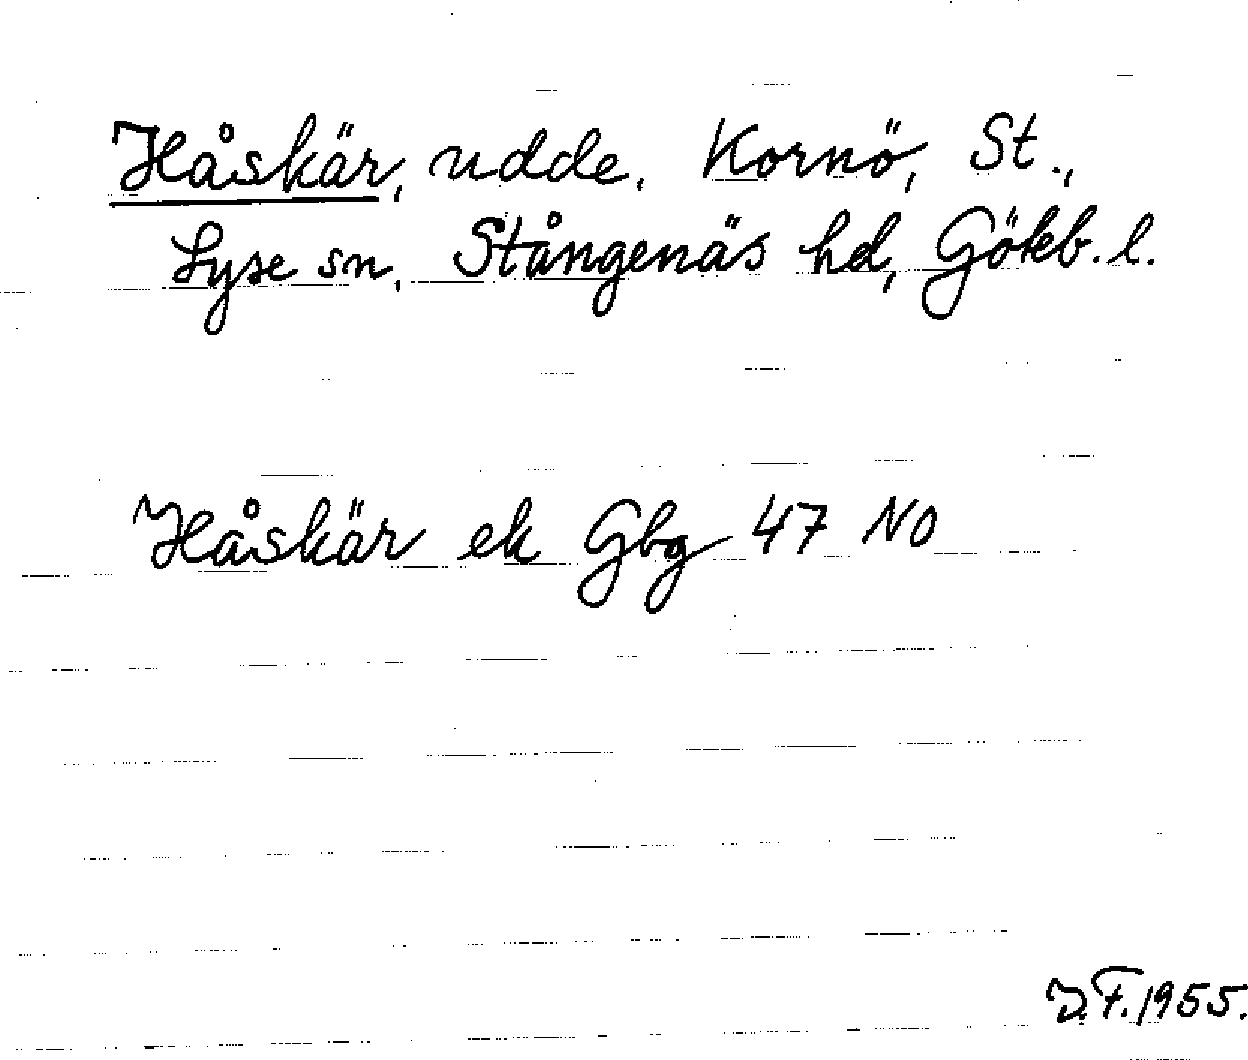 Håskär, udde. Kornö, St.,
Lyse sn, Stångenäs hd, Göteb. l.
Håskär ek Gbg 47 NO
D.F. 1955.